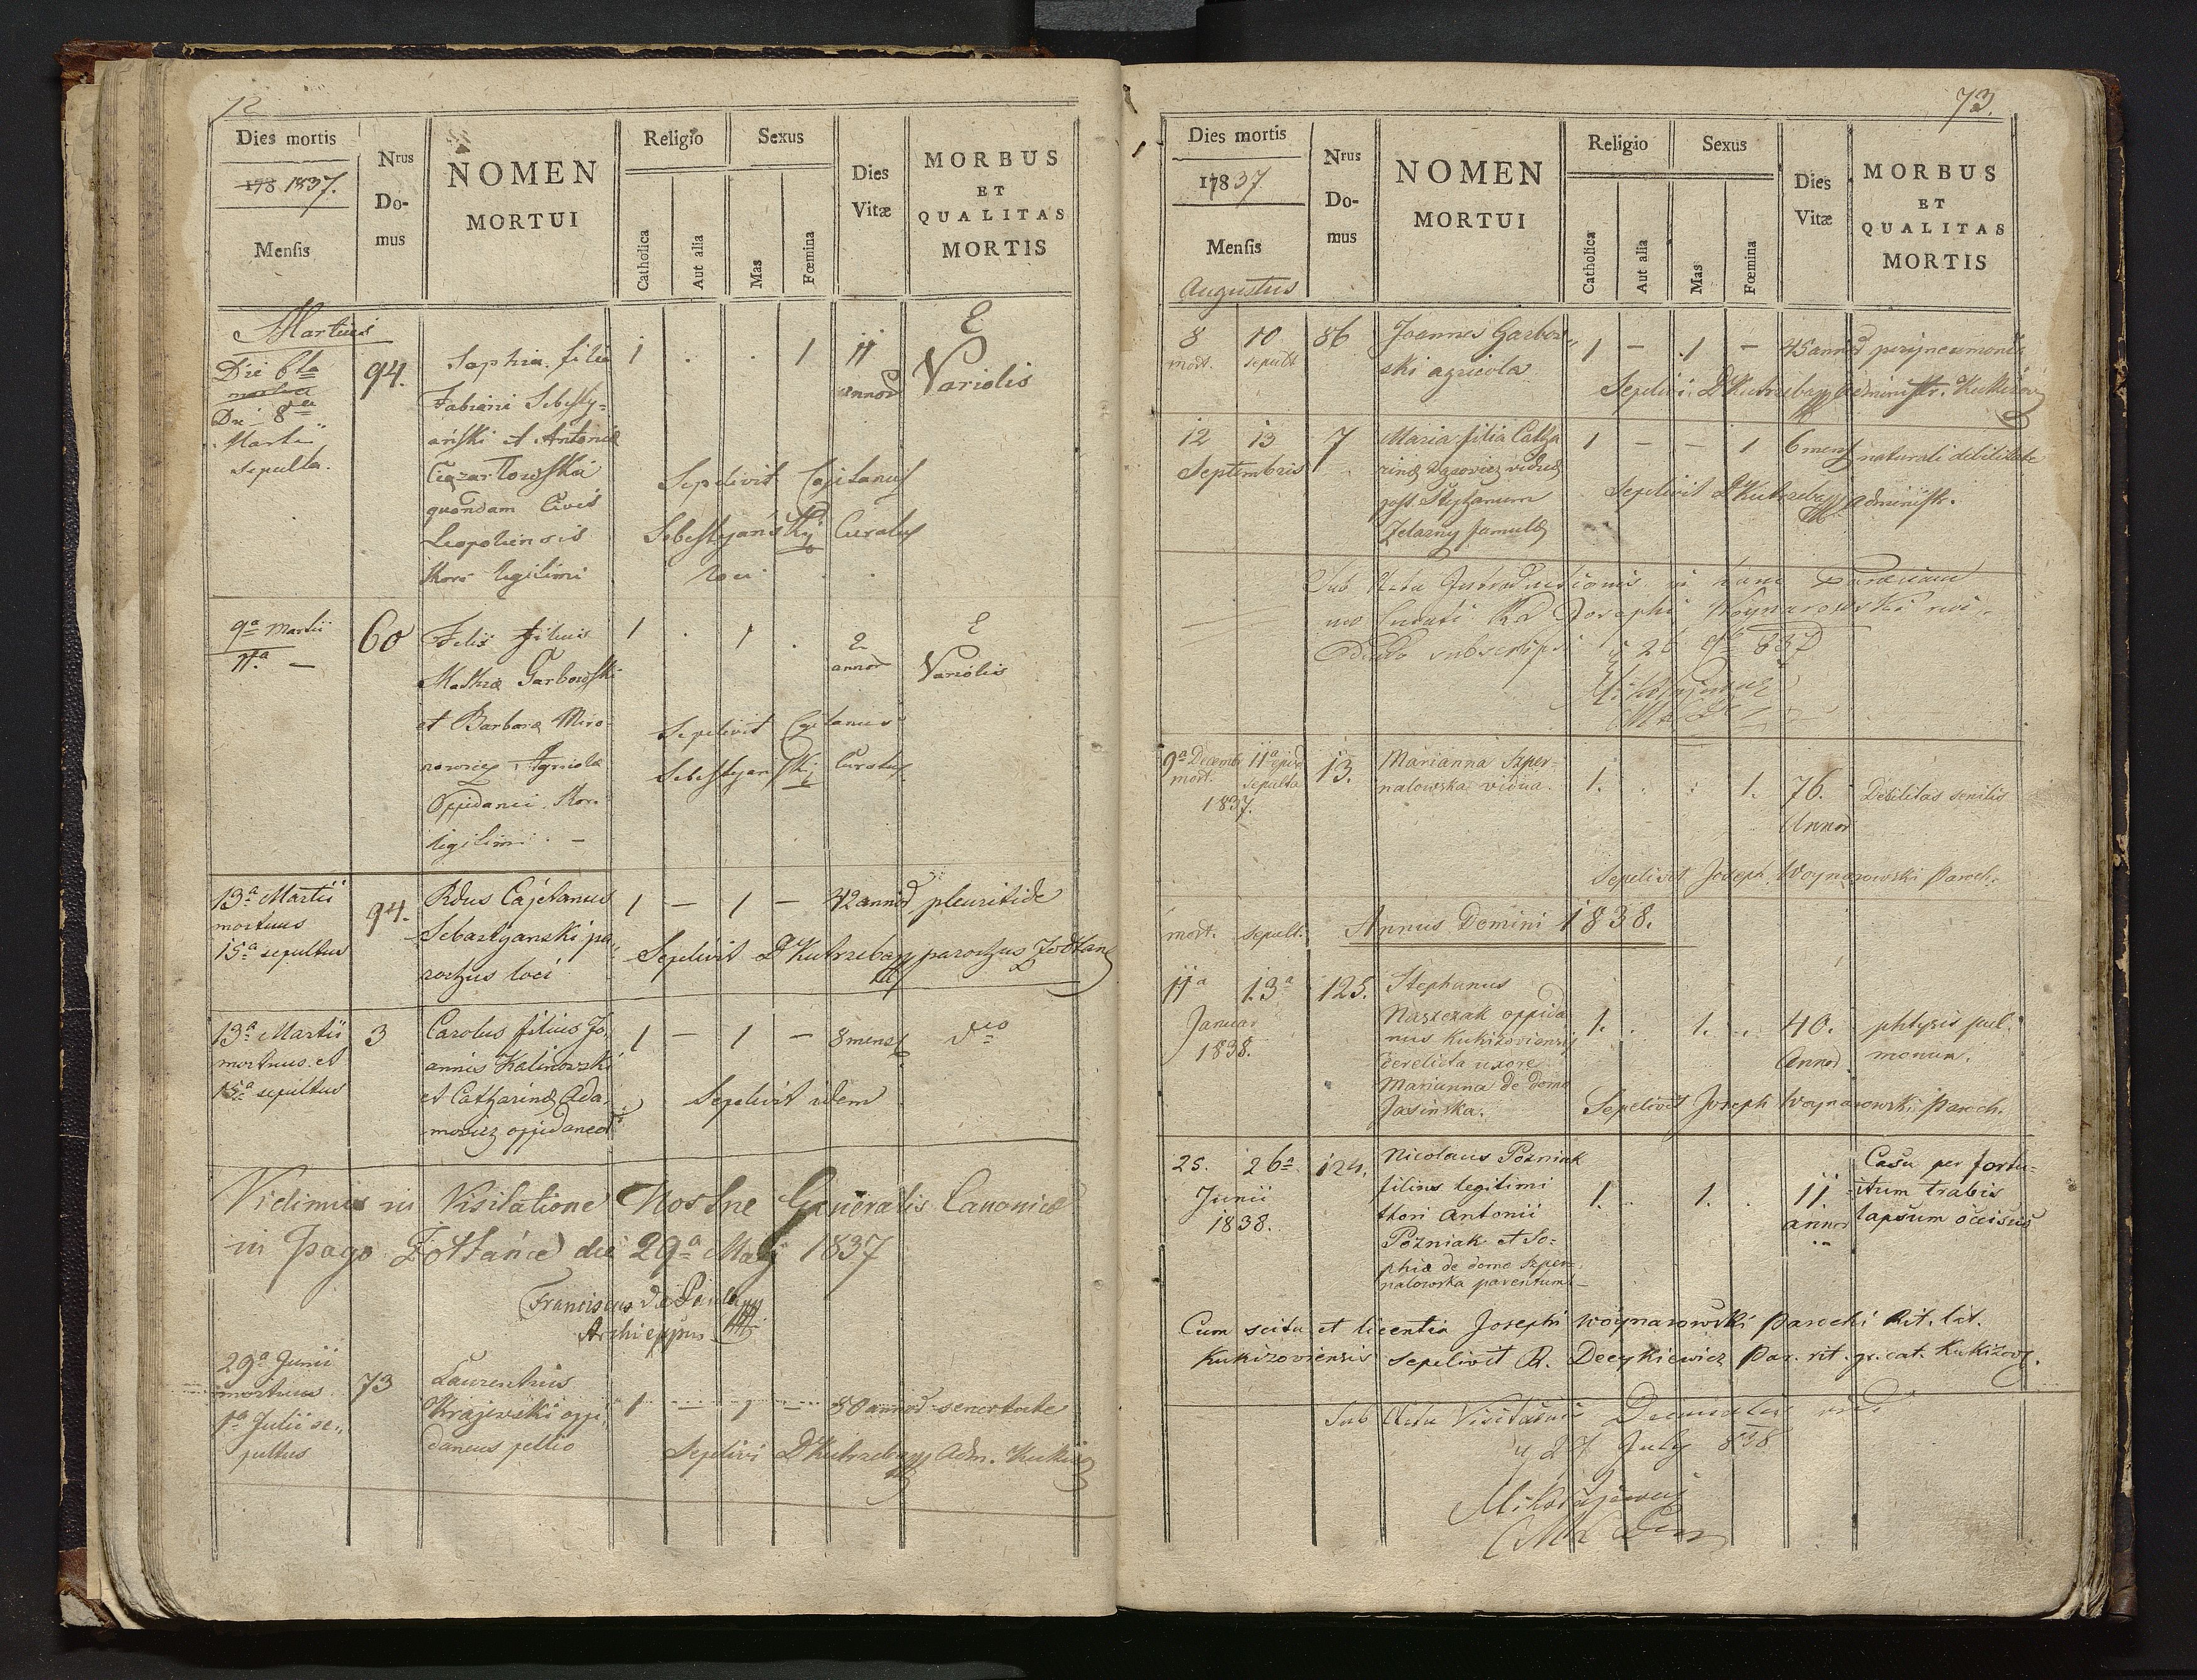 72
Dies mortis
178 1837.
Mensis
Nrus
Do-
mus
NOMEN
MORTUI
Religio
Catholica
Aut alia
Sexus
Mas
Fœmina
Dies
Vitæ
MORBUS
ET
QUALITAS
MORTIS
Martius
Die 6ta
mortua
Die 8va
Martii
sepulta.
94.
Sophia filia
Fabiani Sebesty-
ański et Antoniæ
Ciązarkowska
quondam Civis
Leopoliensis
thori legitimi
1 . . 1 11
annor
E
Variolis
Sepelivit Cajetanus
Sebestyański Curatus
loci
9a Martii
11.a —
60
Felix filius
Mathiæ Garbowski
et Barbara Miro-
nowicz Agricolæ
Oppidanei thori
legitimi. —
1 . 1 . 2
annor
E
Variolis
Sepelivit Cajetanus
Sebestyanski Curatus
13a Martii
mortuus
15a sepultus
94.
Rdus Cajetanus
Sebastyanski pa-
rochus loci
1 — 1 — 42 annor pleuritide
Sepelivit D Kutrzeba parochus Zołtan
13a Martii
mortuus et
15a sepultus
3
Carolus filius Jo-
annis Kalinowski
et Catharinæ Ada-
mowicz oppidaneor
1 — 1 — 8 mens dtto
Sepelivit idem
Vidimus in Visitatione Nostræ Generalis Canonicæ
in Pago Żołtańce die 29a Maij 1837
Franciscus de Paula
Archieppus
29a Junii
mortuus
1a Julii se-
pultus
73
Laurentius
Krajewski oppi-
daneus pellio
1 — 1 — 80 annor senectute
Sepelivi D Kutrzeba Adm. Kukiz
73.
Dies mortis
17837
Mensis
Augustus
Nrus
Do-
mus
NOMEN
MORTUI
Religio
Catholica
Aut alia
Sexus
Mas
Fœmina
Dies
Vitæ
MORBUS
ET
QUALITAS
MORTIS
8 10 86
mort. sepult
Joannes Garbow-
ski agricola
1 — 1 — 45 annor peripneumonia
Sepelivi D Kutrzeba administr. Kukizov
12 13 7
Septembris
Maria filia Catha
rinæ viduæ
post Stephanum
Zelazny famulæ
1 — — 1 6 mens naturali debilitate
Sepelivit D Kutrzeba administr.
Sub Actu Introductionis in hanc Parœciam
Curati Rd Josephi Woynarowski
subscripsi 26 837
9a Decembr 11a ejusd 13.
mort. sepulta
1837.
Marianna Szper-
nalowska vidua.
1. . : 1. 76.
Annor
Debilitas senilis
Sepelivit Joseph Woynarowski Paroch.
mort. sepult. Annus Domini 1838.
11a 13a 125.
Januar
1838.
Stephanus
Naszczak oppida
nus Kukizoviensis
derelicta uxore
Marianna de domo
Jasinska.
1. . 1. . 40.
Annor.
phtysis pul-
monum.
Sepelivit Joseph Woynarowski Paroch.
25. 26a 124.
Junii
1838.
Nicolaus Pozniak
filius legitimi
thori Antonii
Pozniak et So-
phia de domo Szper-
nalowska parentum
1. . 1. . 11
annor
Casu per fortu-
itum trabis
lapsum occisus
Cum scitu et licentia Josephi Woynarowski Parochi Rit. lat.
Kukizoviensis sepelivit R. Decykiewicz Par. rit. gr. cat. Kukizov.
Sub Actu Visitationis Decanalis vidi
27 July 838